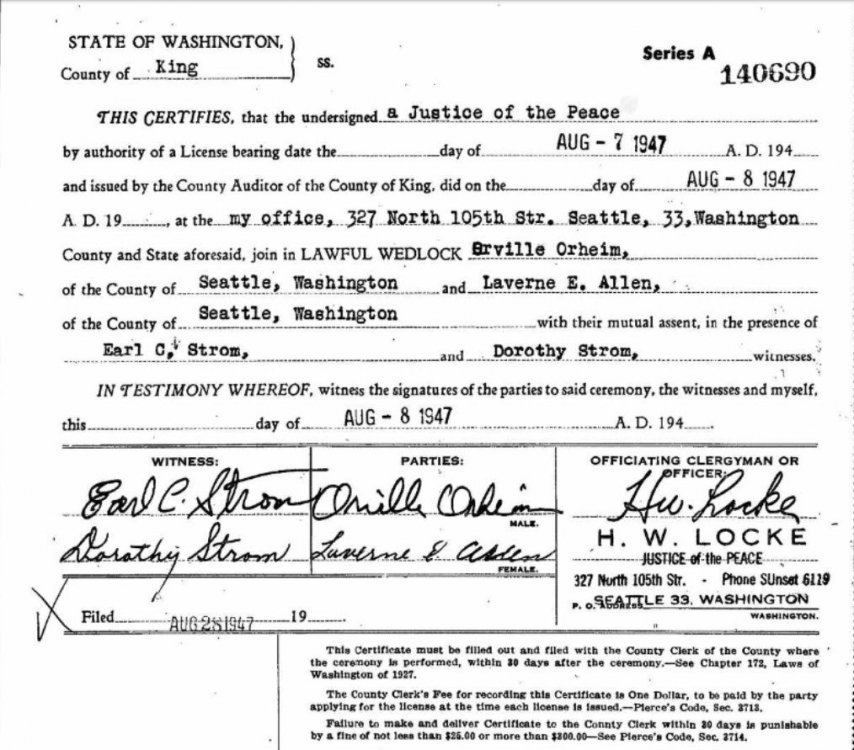 STATE OF WASHINGTON,
County of King ss.
Series A
140690
THIS CERTIFIES, that the undersigned a Justice of the Peace
by authority of a License bearing date the day of AUG - 7 1947 A. D. 194
and issued by the County Auditor of the County of King, did on the day of AUG - 8 1947
A. D. 19, at the my office, 327 North 105th Str. Seattle, 33, Washington
County and State aforesaid, join in LAWFUL WEDLOCK Orville Orheim,
of the County of Seattle, Washington and Laverne E. Allen,
of the County of Seattle, Washington with their mutual assent, in the presence of
Earl C, Strom, and Dorothy Strom, witnesses.
IN TESTIMONY WHEREOF, witness the signatures of the parties to said ceremony, the witnesses and myself,
this day of AUG - 8 1947 A. D. 194
WITNESS: PARTIES: OFFICIATING CLERGYMAN OR OFFICER:
Earl C. Strom Orville Orheim H.W. Locke
MALE.
H. W. LOCKE
Dorothy Strom Laverne E Allen
FEMALE.
JUSTICE of the PEACE
327 North 105th Str. - Phone SUnset 6119
P. O. ADDRESS SEATTLE 33, WASHINGTON
WASHINGTON.
Filed AUG 28 1947 19
This Certificate must be filled out and filed with the County Clerk of the County where
the ceremony is performed, within 30 days after the ceremony.—See Chapter 172, Laws of
Washington of 1927.
The County Clerk's Fee for recording this Certificate is One Dollar, to be paid by the party
applying for the license at the time each license is issued.—Pierce's Code, Sec. 3713.
Failure to make and deliver Certificate to the County Clerk within 30 days is punishable
by a fine of not less than $25.00 or more than $300.00—See Pierce's Code, Sec. 3714.